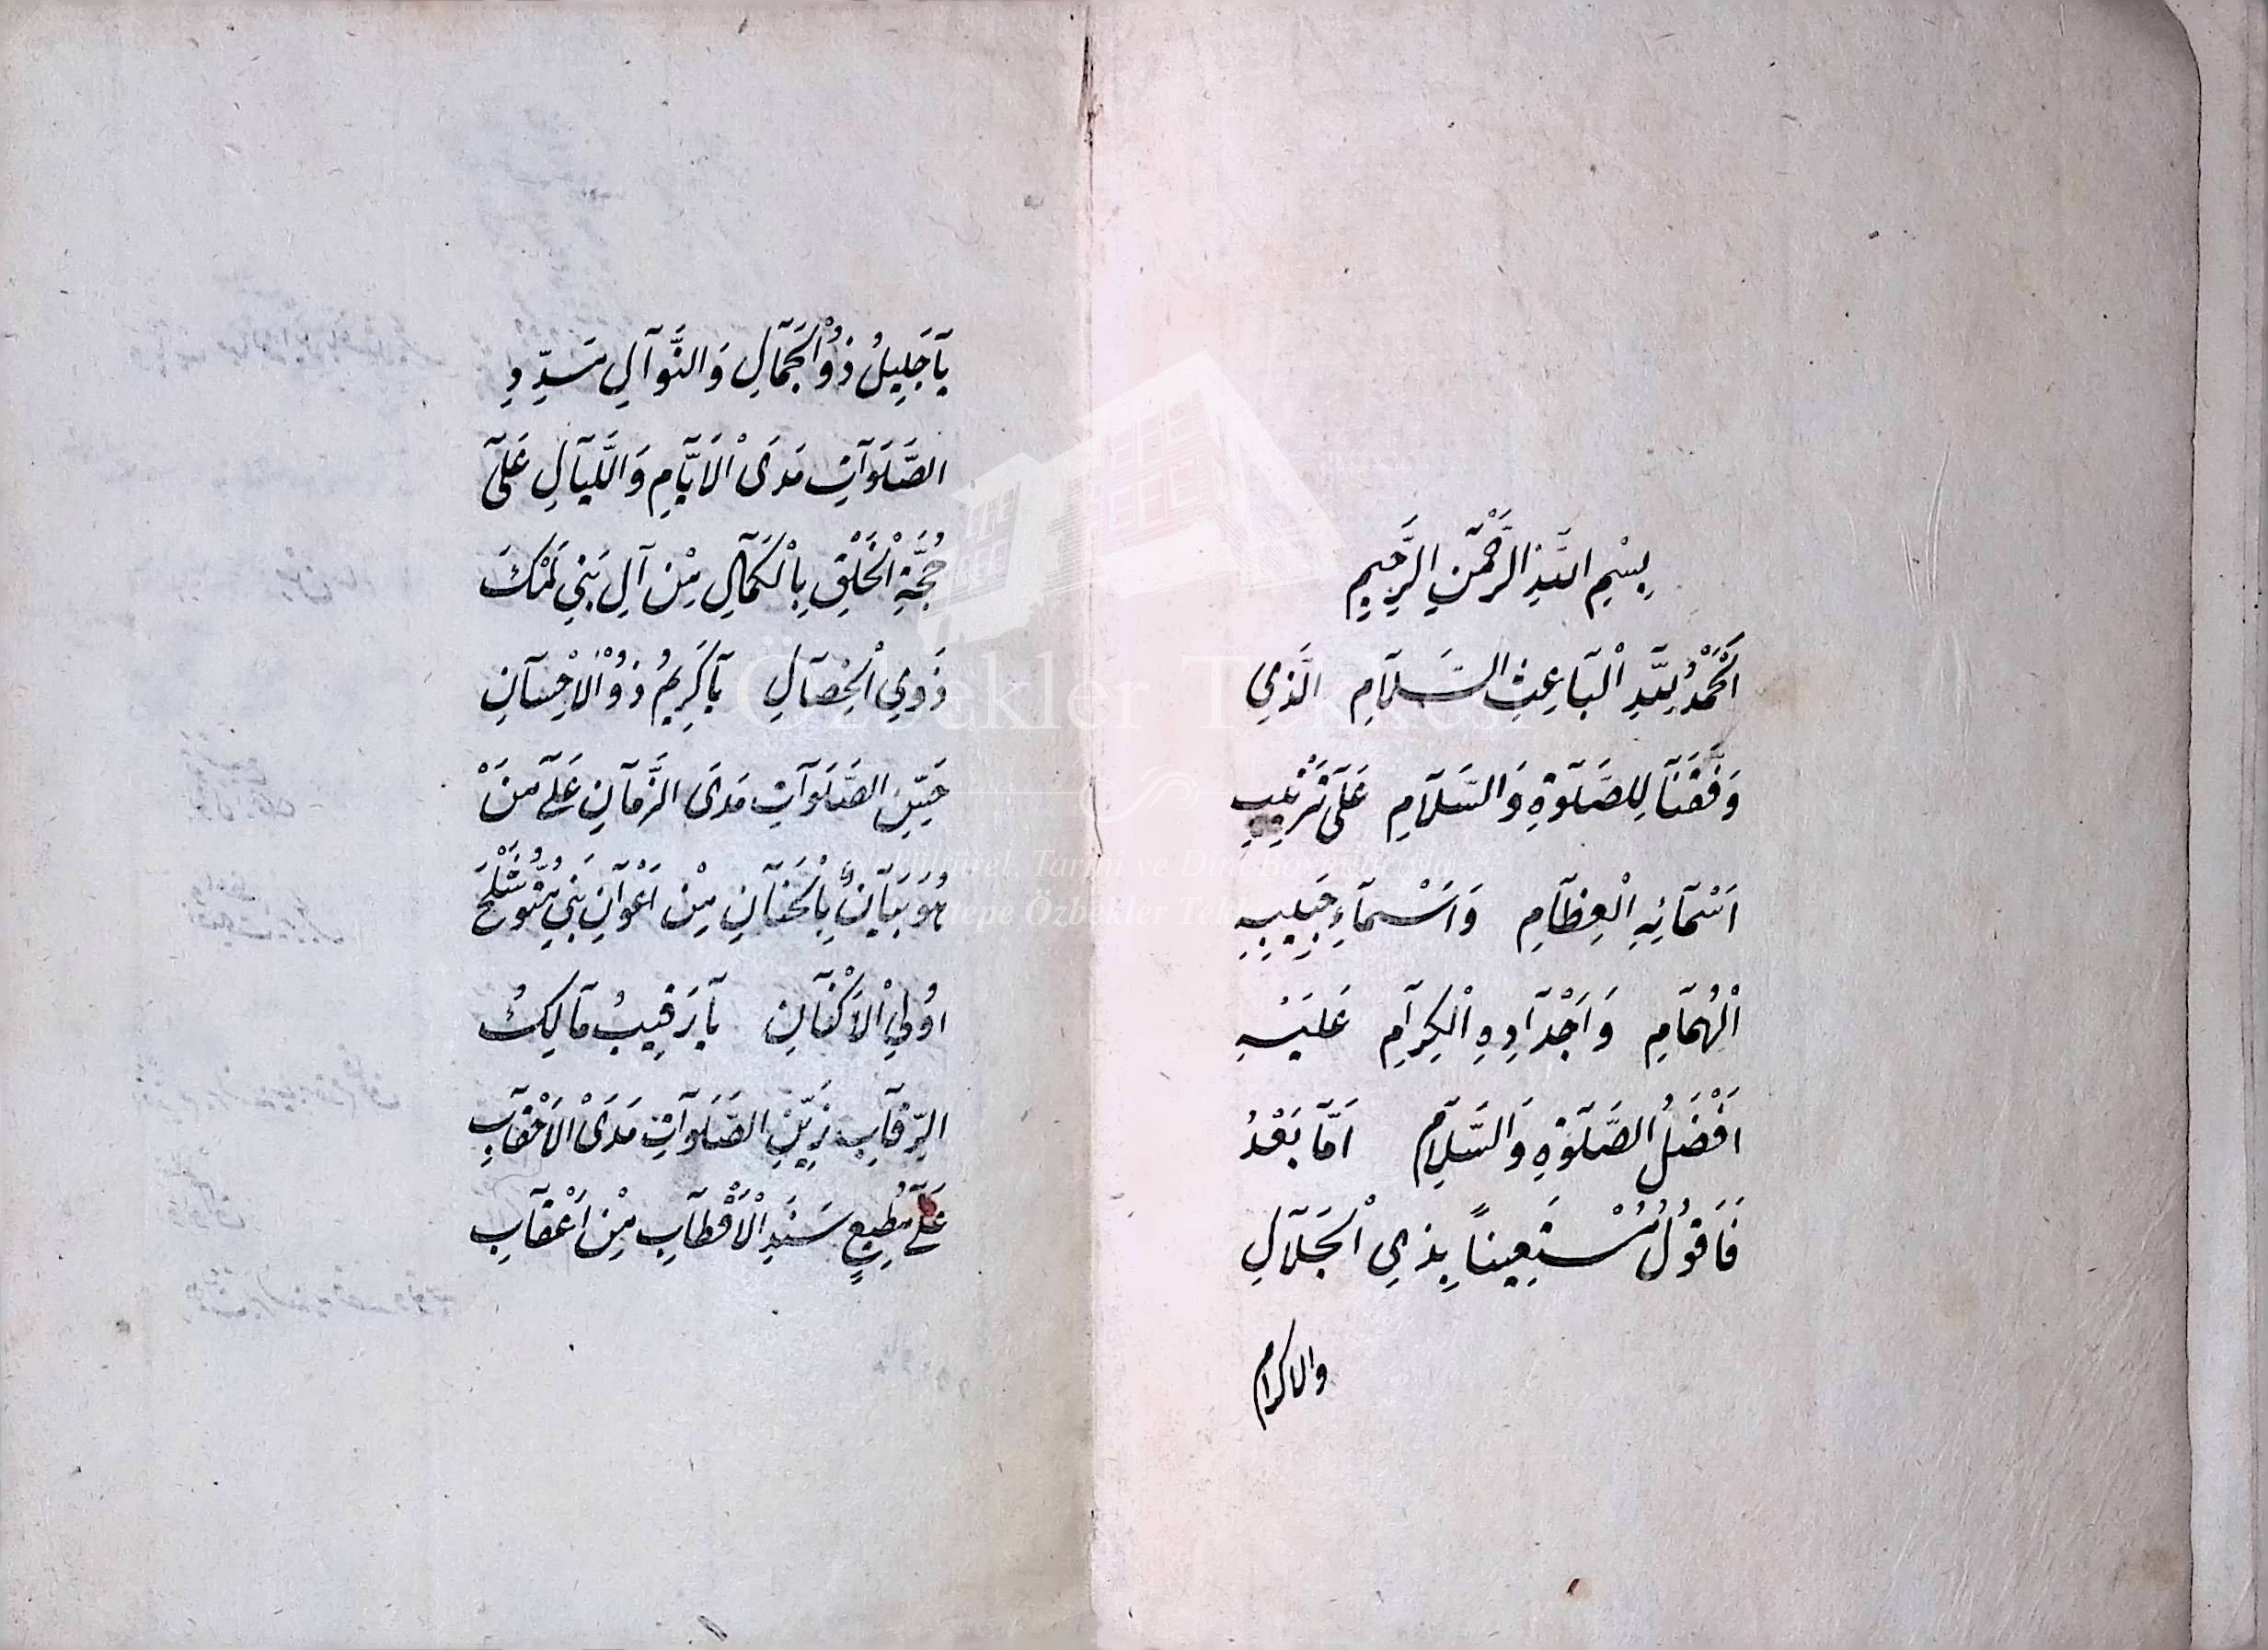 بِسْمِ اللّٰهِ الرَّحْمٰنِ الرَّحِيمِ
اَلْحَمْدُ لِلّٰهِ الْبَاعِثِ السَّلَامِ الَّذِي
وَفَّقَنَا لِلصَّلٰوةِ وَالسَّلَامِ عَلَى تَرْتِيبِ
اَسْمَائِهِ الْعِظَامِ وَاَسْمَاءِ حَبِيبِهِ
الْهُمَامِ وَاَجْدَادِهِ الْكِرَامِ عَلَيْهِ
اَفْضَلُ الصَّلٰوةِ وَالسَّلَامِ اَمَّا بَعْدُ
فَاَقُولُ مُسْتَعِيناً بِذِي الْجَلَالِ
والاكرام
يَا جَلِيلُ ذُو الْجَمَالِ وَالنَّوَالِ سَدِّدِ
الصَّلَوَاتِ مَدَى الْاَيَّامِ وَاللَّيَالِ عَلَى
حُجَّةِ الْخَلْقِ بِالْكَمَالِ مِنْ آلِ بَنِي لَمْكَ
ذَوِي الْخِصَالِ يَا كَرِيمُ ذُو الْاِحْسَانِ
حَيِّنِ الصَّلَوَاتِ مَدَى الزَّمَانِ عَلَى مَنْ
هُوَ بَيَانٌ بِالْحَنَانِ مِنْ اَعْوَانِ بَنِي مَتُّوشَلَخَ
اُولِي الْاَكْنَانِ يَا رَقِيبُ مَالِكُ
الرِّقَابِ زَيِّنِ الصَّلَوَاتِ مَدَى الْاَحْقَابِ
عَلَى مُطِيعٍ سَنَدِ الْاَقْطَابِ مِنْ اَعْقَابِ
Özbekler Tekkesi